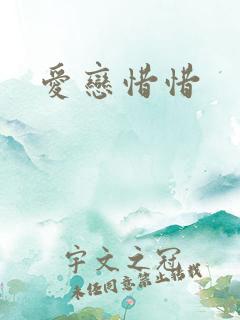 愛戀惜惜
宇文之冠
未經同意禁止轉載